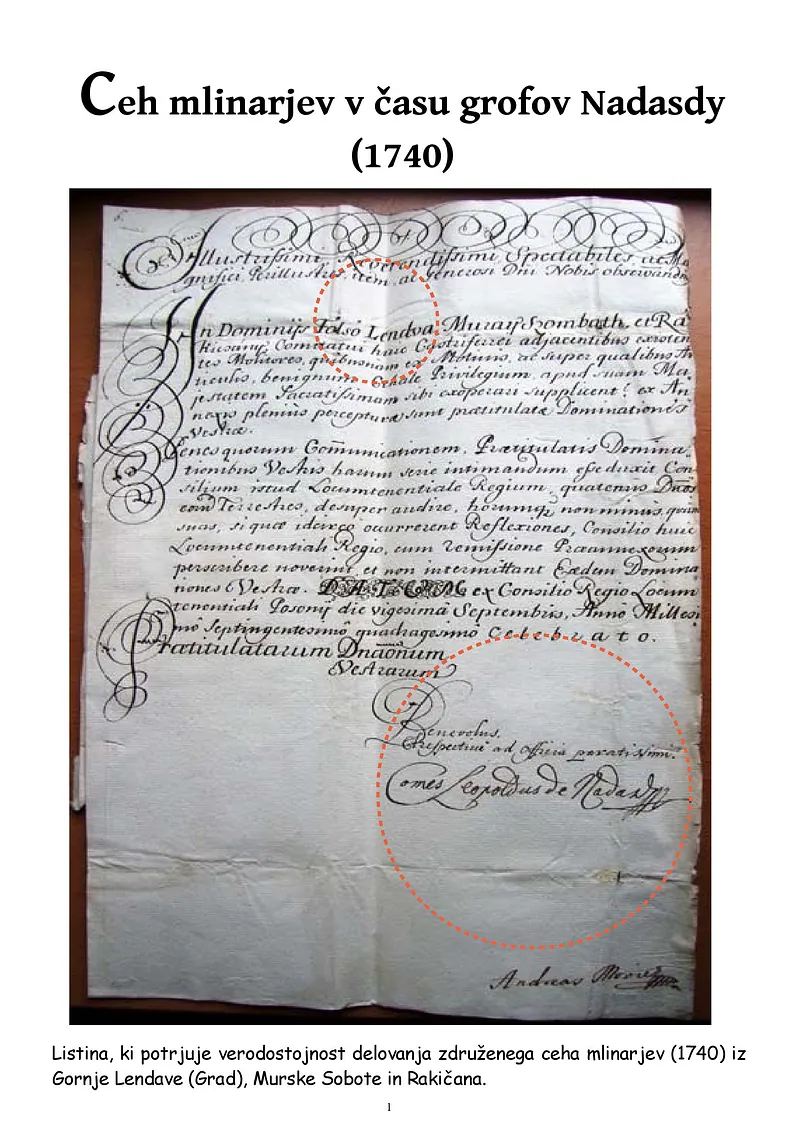 Ceh mlinarjev v času grofov Nadasdy
(1740)
Illustrissimi, Reverendissimi Spectabiles, ac Ma
gnifici, Perillustres, item, ac Generosi Dni Nobis observandi
In Dominijs Folsö Lendva, Muraÿ Szombath, et Ra
kicsany, Comitatui huic Castriferrei adjacentibus existen
tes Molitores, quibusnam ex Motivis, ac super qualibus Ar
ticulis, benignum Cehale Privilegium, apud suam Ma
jestatem Sacratissimam sibi exoperari supplicent? ex An
nexo plenius percepturæ sunt prætitulatæ Dominationes
Vestræ.
Penes quorum Com̃unicationem, Prætitulatis Domina
tionibus Vestris harum serie intimandum esse duxit Con
silium istud Locumtenentiale Regium, quatenus Dnos
eom̃ Terrestres, desuper audire, horumq nonminus, quam
suas, si quæ idcirco occurrerent Reflexiones, Consilio huic
Locumtenentiali Regio, cum remissione Præannexorum
perscribere noverint, et non intermittant Eædem Domina
tiones Vestræ. DATUM ex Consilio Regio Locum
tenentiali Posonij die vigesima Septembris, Anno Millesi
mo Septingentesimo quadragesimo Celebrato.
Prætitulatarum Dnaõnum
Vestrarum
Benevolus,
Respective ad officia paratissimi
Comes Leopoldus de Nadasdy
Andreas
Listina, ki potrjuje verodostojnost delovanja združenega ceha mlinarjev (1740) iz
Gornje Lendave (Grad), Murske Sobote in Rakičana.
1